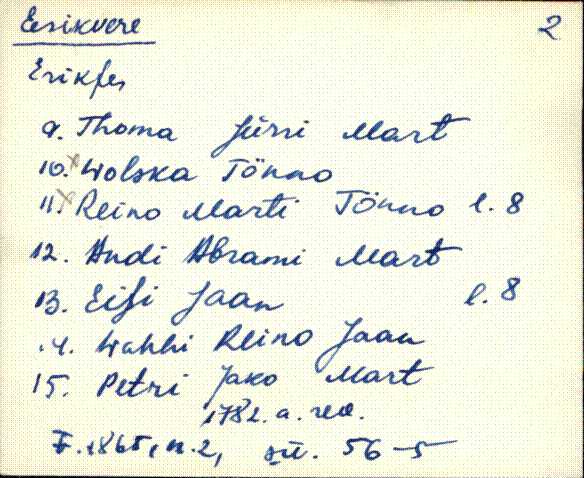 Eesikvere 2
Erikfer
9. Thoma Jürri Mart
10. Wolska Tönno
11. Reino Marti Tönno l. 8
12. Andi Abrami Mart
13. Eisi Jaan l. 8
14. Wahhi Reino Jaan
15. Petri Jako Mart
1782. a. rev.
F. 1865, n. 2, sü. 56-5